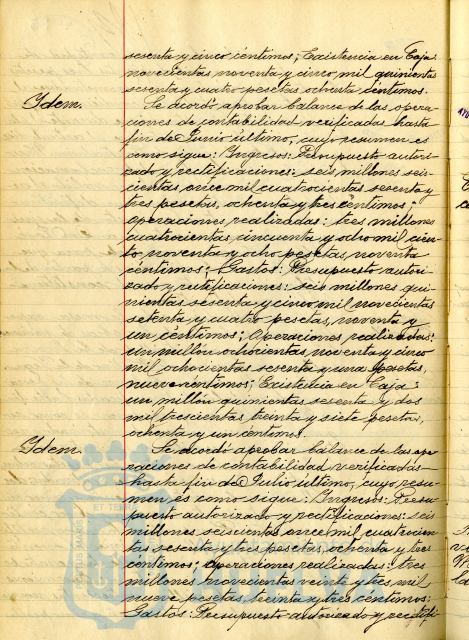 sesenta y cinco céntimos; Existencia en Caja:
novecientas noventa y cinco mil quinientas
sesenta y cuatro pesetas ochenta céntimos.
Idem. Se acordó aprobar balance de las opera-
ciones de contabilidad verificadas hasta
fin de Junio último, cuyo resumen es
como sigue: Ingresos: Presupuesto autori-
zado y rectificaciones: seis millones seis-
cientas once mil cuatrocientas sesenta y
tres pesetas, ochenta y tres céntimos;
operaciones realizadas: tres millones
cuatrocientas cincuenta y ocho mil cien-
to noventa y ocho pesetas, noventa
céntimos; Gastos: Presupuesto autori-
zado y rectificaciones: seis millones qui-
nientas sesenta y cinco mil novecientas
setenta y cuatro pesetas, noventa y
un céntimos; Operaciones realizadas:
un millón ochocientas noventa y cinco
mil ochocientas sesenta y una pesetas,
nueve céntimos; Existencia en Caja:
un millón quinientas sesenta y dos
mil trescientas treinta y siete pesetas,
ochenta y un céntimos.
Idem. Se acordó aprobar balance de las ope-
raciones de contabilidad verificadas
hasta fin de Julio último, cuyo resu-
men es como sigue: Ingresos: Presu-
puesto autorizado y rectificaciones: seis
millones seiscientas once mil cuatrocien-
tas sesenta y tres pesetas, ochenta y tres
céntimos; operaciones realizadas: tres
millones novecientas veinte y tres mil
nueve pesetas, treinta y tres céntimos:
Gastos: Presupuesto autorizado y rectifi-